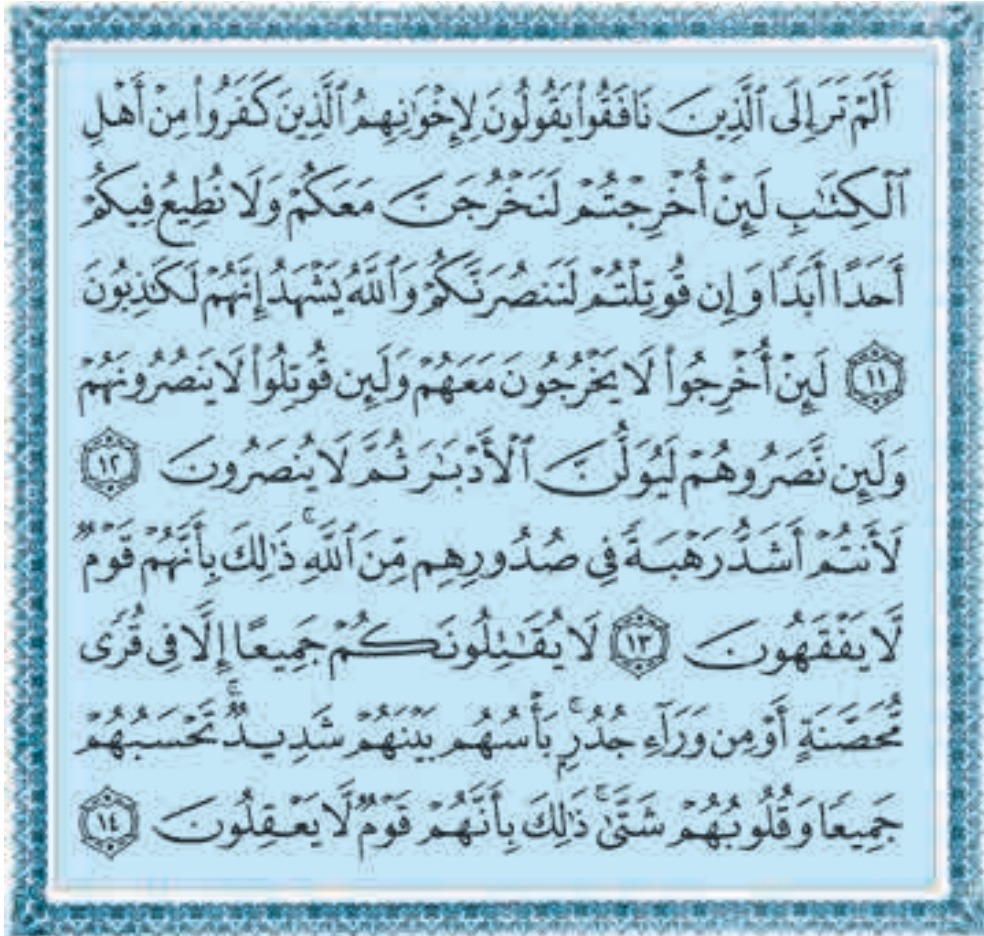 أَلَمْ تَرَ إِلَى ٱلَّذِينَ نَافَقُوا۟ يَقُولُونَ لِإِخْوَٰنِهِمُ ٱلَّذِينَ كَفَرُوا۟ مِنْ أَهْلِ
ٱلْكِتَٰبِ لَئِنْ أُخْرِجْتُمْ لَنَخْرُجَنَّ مَعَكُمْ وَلَا نُطِيعُ فِيكُمْ
أَحَدًا أَبَدًا وَإِن قُوتِلْتُمْ لَنَنصُرَنَّكُمْ وَٱللَّهُ يَشْهَدُ إِنَّهُمْ لَكَٰذِبُونَ
۝١١ لَئِنْ أُخْرِجُوا۟ لَا يَخْرُجُونَ مَعَهُمْ وَلَئِن قُوتِلُوا۟ لَا يَنصُرُونَهُمْ
وَلَئِن نَّصَرُوهُمْ لَيُوَلُّنَّ ٱلْأَدْبَٰرَ ثُمَّ لَا يُنصَرُونَ ۝١٢
لَأَنتُمْ أَشَدُّ رَهْبَةً فِى صُدُورِهِم مِّنَ ٱللَّهِ ۚ ذَٰلِكَ بِأَنَّهُمْ قَوْمٌ
لَّا يَفْقَهُونَ ۝١٣ لَا يُقَٰتِلُونَكُمْ جَمِيعًا إِلَّا فِى قُرًى
مُّحَصَّنَةٍ أَوْ مِن وَرَآءِ جُدُرٍۭ ۚ بَأْسُهُم بَيْنَهُمْ شَدِيدٌ ۚ تَحْسَبُهُمْ
جَمِيعًا وَقُلُوبُهُمْ شَتَّىٰ ۚ ذَٰلِكَ بِأَنَّهُمْ قَوْمٌ لَّا يَعْقِلُونَ ۝١٤